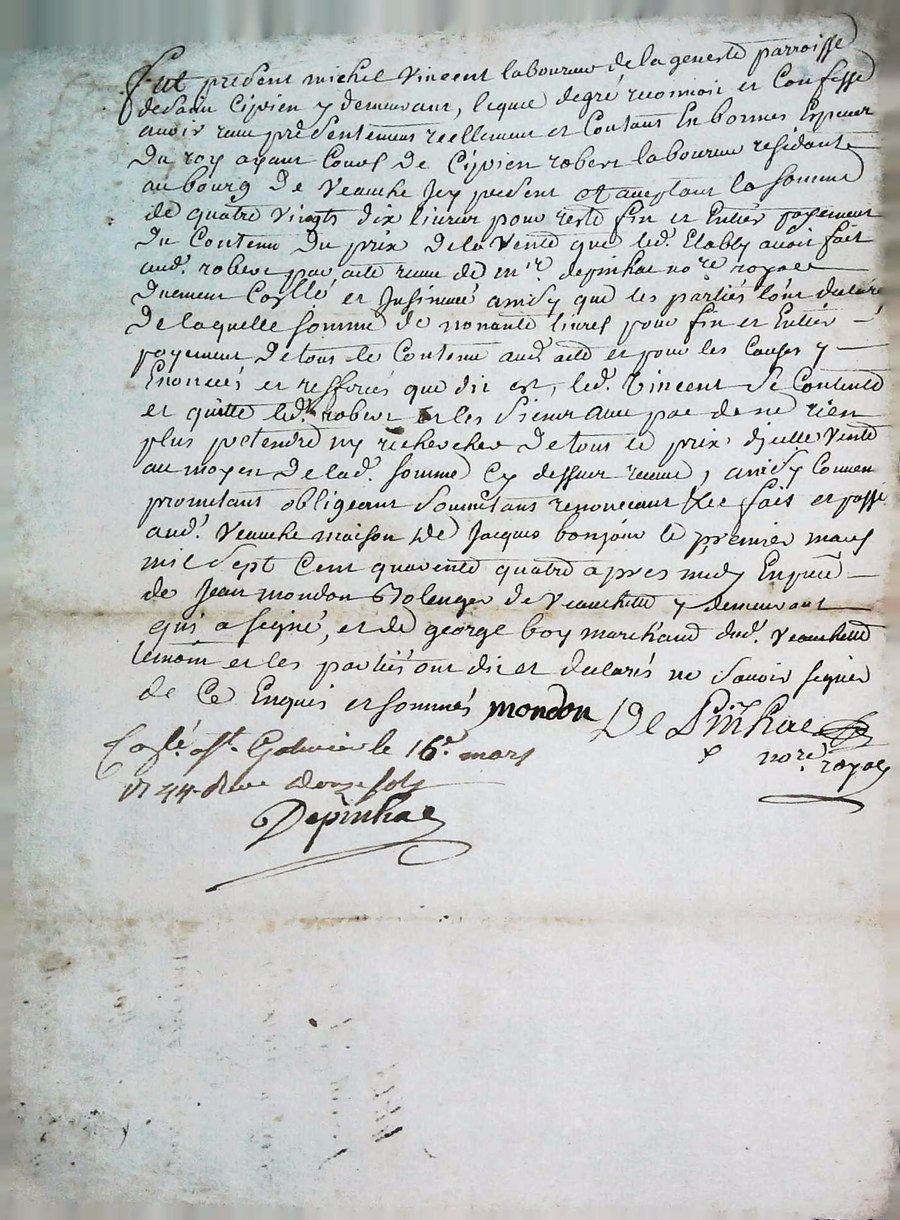 fut present michel Vincent laboureur de la geneste parroisse
de Saint Cipien y demeurant, lequel degré reconnoit et Confesse
avoir reçu présentement réellement et Contant En bonnes Especes
Du roy ayant Cours de Cipien robert laboureur résidant
au bourg De Veauche Jcy present et acceptant la somme
de quatre vingts dix livres pour reste fin et Entier payement
Du Contenu Du prix De la Vente que led. avoit fait
aud. robert par acte reçue de m.re depinhac no.re royal
Duement Cosllé et Jnsinuué ainsy que les partiés l'ont déclaré
De laquelle somme de nonante livres pour fin et Entier
payement De tout le Contenu aud. acte et pour les Causes y
Enoncées et refferées que dit est, led. Vincent Se Contente
et quitte led. robert et les siens avec pac de ne rien
plus pretendre ny rechercher De tout le prix d'jcelle Vente
au moyen De lad. somme Cy dessus reçue, ainsy Convenu
promettant obligeant Soumettant renonceant &c fait et passé
aud. Veauche maison De Jacques bonjour le premier mars
mil Sept Cent quarente quatre apres midy En pnce
de Jean mondon Bolenger de Veauchette y demeurant
qui a signé, et de george boy marchand dud. Veauchette
temoin et les partiés ont dit et declarés ne Savoir signer
de Ce Enquis et sommés mondon De Pinhac
no.re royal
Coslé a St. Galmier le 16.e mars
1744 Reçu douze sols
Depinhac